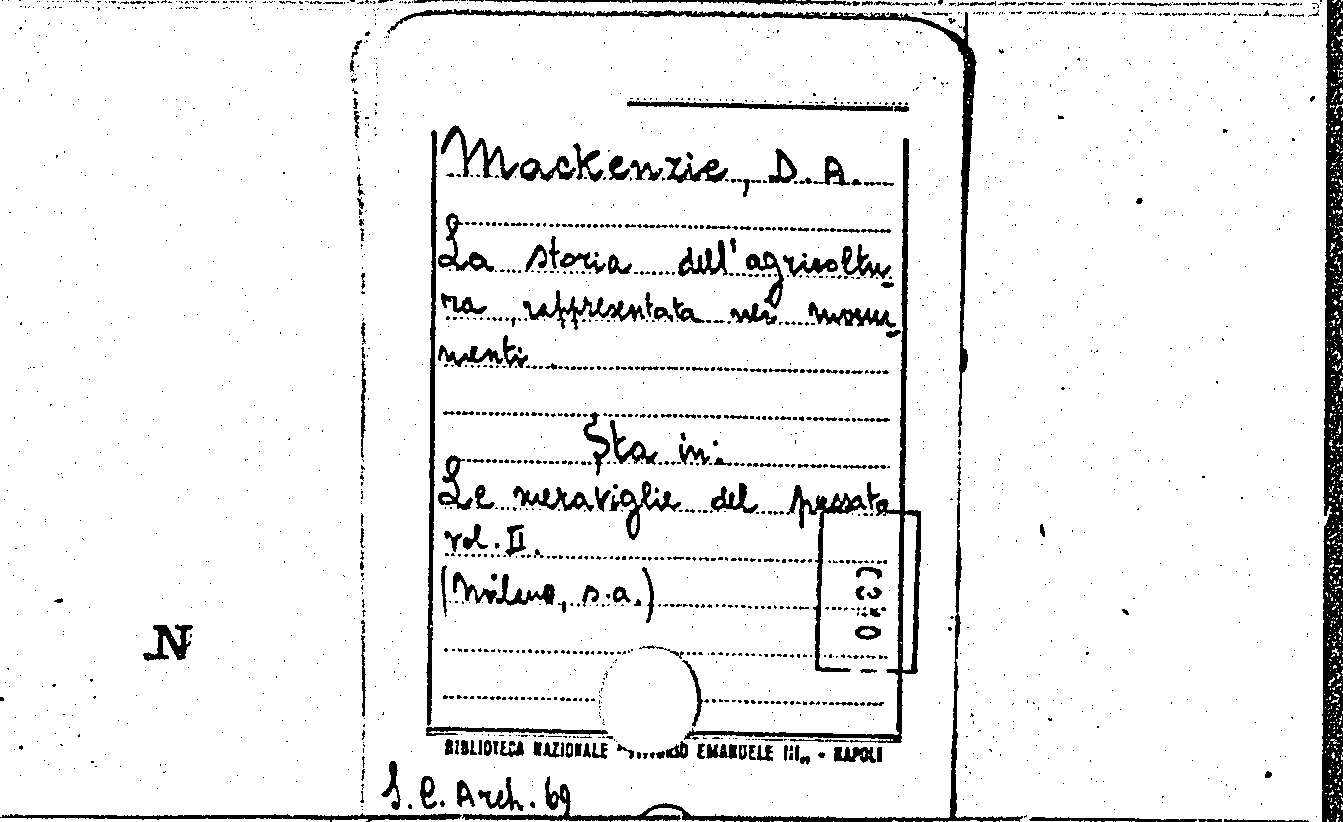 Mackenzie, D. A.
La storia dell'agricoltu-
ra, rappresentata nei monu-
menti.
Sta in:
Le meraviglie del passato
vol. II.
(Milano, s.a.)
N
BIBLIOTECA NAZIONALE EMANUELE III„ - NAPOLI
S. C. Arch. 69